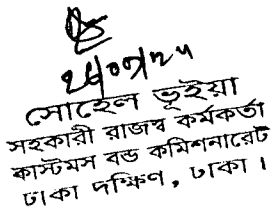 সোহেল ভূইয়া
সহকারী রাজস্ব কর্মকর্তা
কাস্টমস বন্ড কমিশনারেট
ঢাকা দক্ষিণ, ঢাকা।